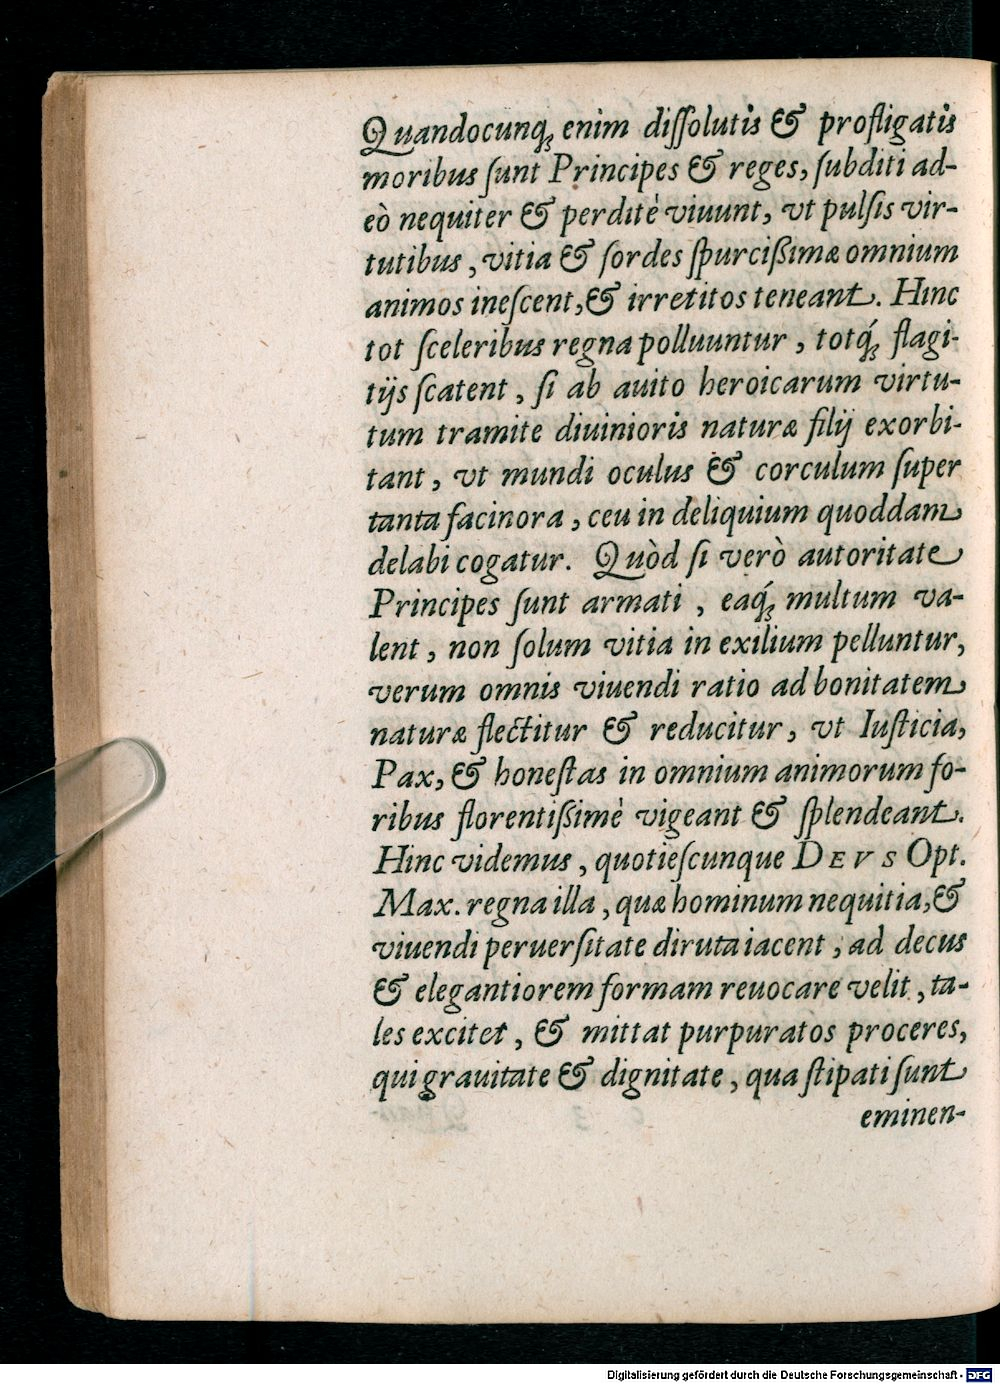 Quandocunq; enim diſſolutis & profligatis
moribus ſunt Principes & reges, ſubditi ad-
eò nequiter & perditè viuunt, vt pulſis vir-
tutibus, vitia & ſordes ſpurcißimæ omnium
animos ineſcent, & irretitos teneant. Hinc
tot ſceleribus regna polluuntur, totq́; flagi-
tijs ſcatent, ſi ab auito heroicarum virtu-
tum tramite diuinioris naturæ filij exorbi-
tant, vt mundi oculus & corculum ſuper
tanta facinora, ceu in deliquium quoddam
delabi cogatur. Quòd ſi verò autoritate
Principes ſunt armati, eaq́; multum va-
lent, non ſolum vitia in exilium pelluntur,
verum omnis viuendi ratio ad bonitatem
naturæ flectitur & reducitur, vt Iuſticia,
Pax, & honeſtas in omnium animorum fo-
ribus florentißimè vigeant & ſplendeant.
Hinc videmus, quotieſcunque DEVS Opt.
Max. regna illa, quæ hominum nequitia, &
viuendi peruerſitate diruta iacent, ad decus
& elegantiorem formam reuocare velit, ta-
les excitet, & mittat purpuratos proceres,
qui grauitate & dignitate, qua ſtipati ſunt
eminen-
Digitalisierung gefördert durch die Deutsche Forschungsgemeinschaft - DFG